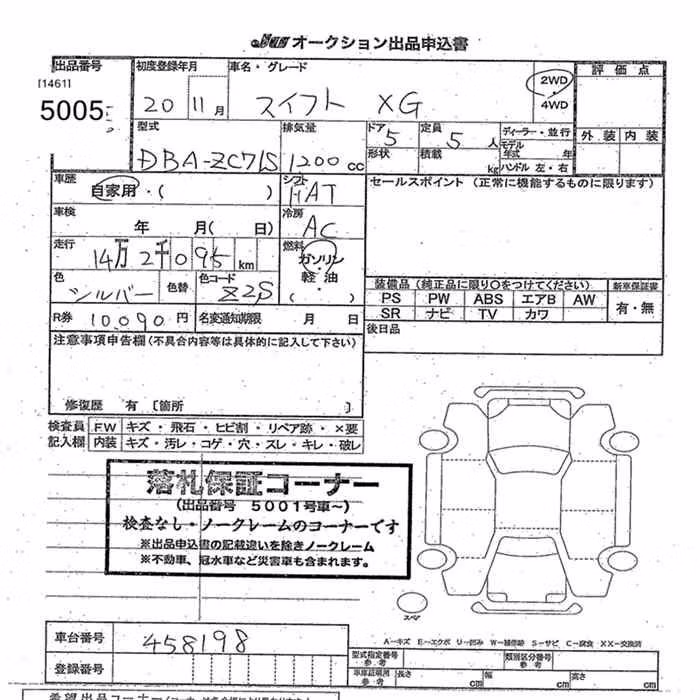 JU オークション出品申込書
出品番号 初度登録年月 車名・グレード 評価点
[1461]
5005 20 11月 スイフト XG 2WD
4WD
型式 排気量 ドア 定員 ディーラー・並行 外装 内装
DBA-ZC71S 1200cc 5 5人 モデル年式 年
形状 積載 kg ハンドル 左・右
車歴 シフト セールスポイント(正常に機能するものに限ります)
自家用・( ) AT
車検 冷房
年 月( 日) AC
走行 燃料
14万2千095km ガソリン
軽油
( )
色 色替 色コード 装備品(純正品に限り○をつけてください) 新車保証書
シルバー Z2S PS PW ABS エアB AW 有・無
SR ナビ TV カワ
R券 10,090円 名変通知期限 月 日 後日品
注意事項申告欄(不具合内容等は具体的に記入して下さい)
修復歴 有 [箇所 ]
検査員 FW キズ・飛石・ヒビ割・リペア跡・×要
記入欄 内装 キズ・汚レ・コゲ・穴・スレ・キレ・破レ
落札保証コーナー
(出品番号 5001号車~)
検査なし・ノークレームのコーナーです
※出品申込書の記載違いを除きノークレーム
※不動車、冠水車など災害車も含まれます。
スペア
A-キズ E-エクボ U-凹み W-補修跡 S-サビ C-腐食 XX-交換済
車台番号 458198 型式指定番号 参考 類別区分番号 参考
登録番号 車庫証明用 参考 長さ cm 幅 cm 高さ cm